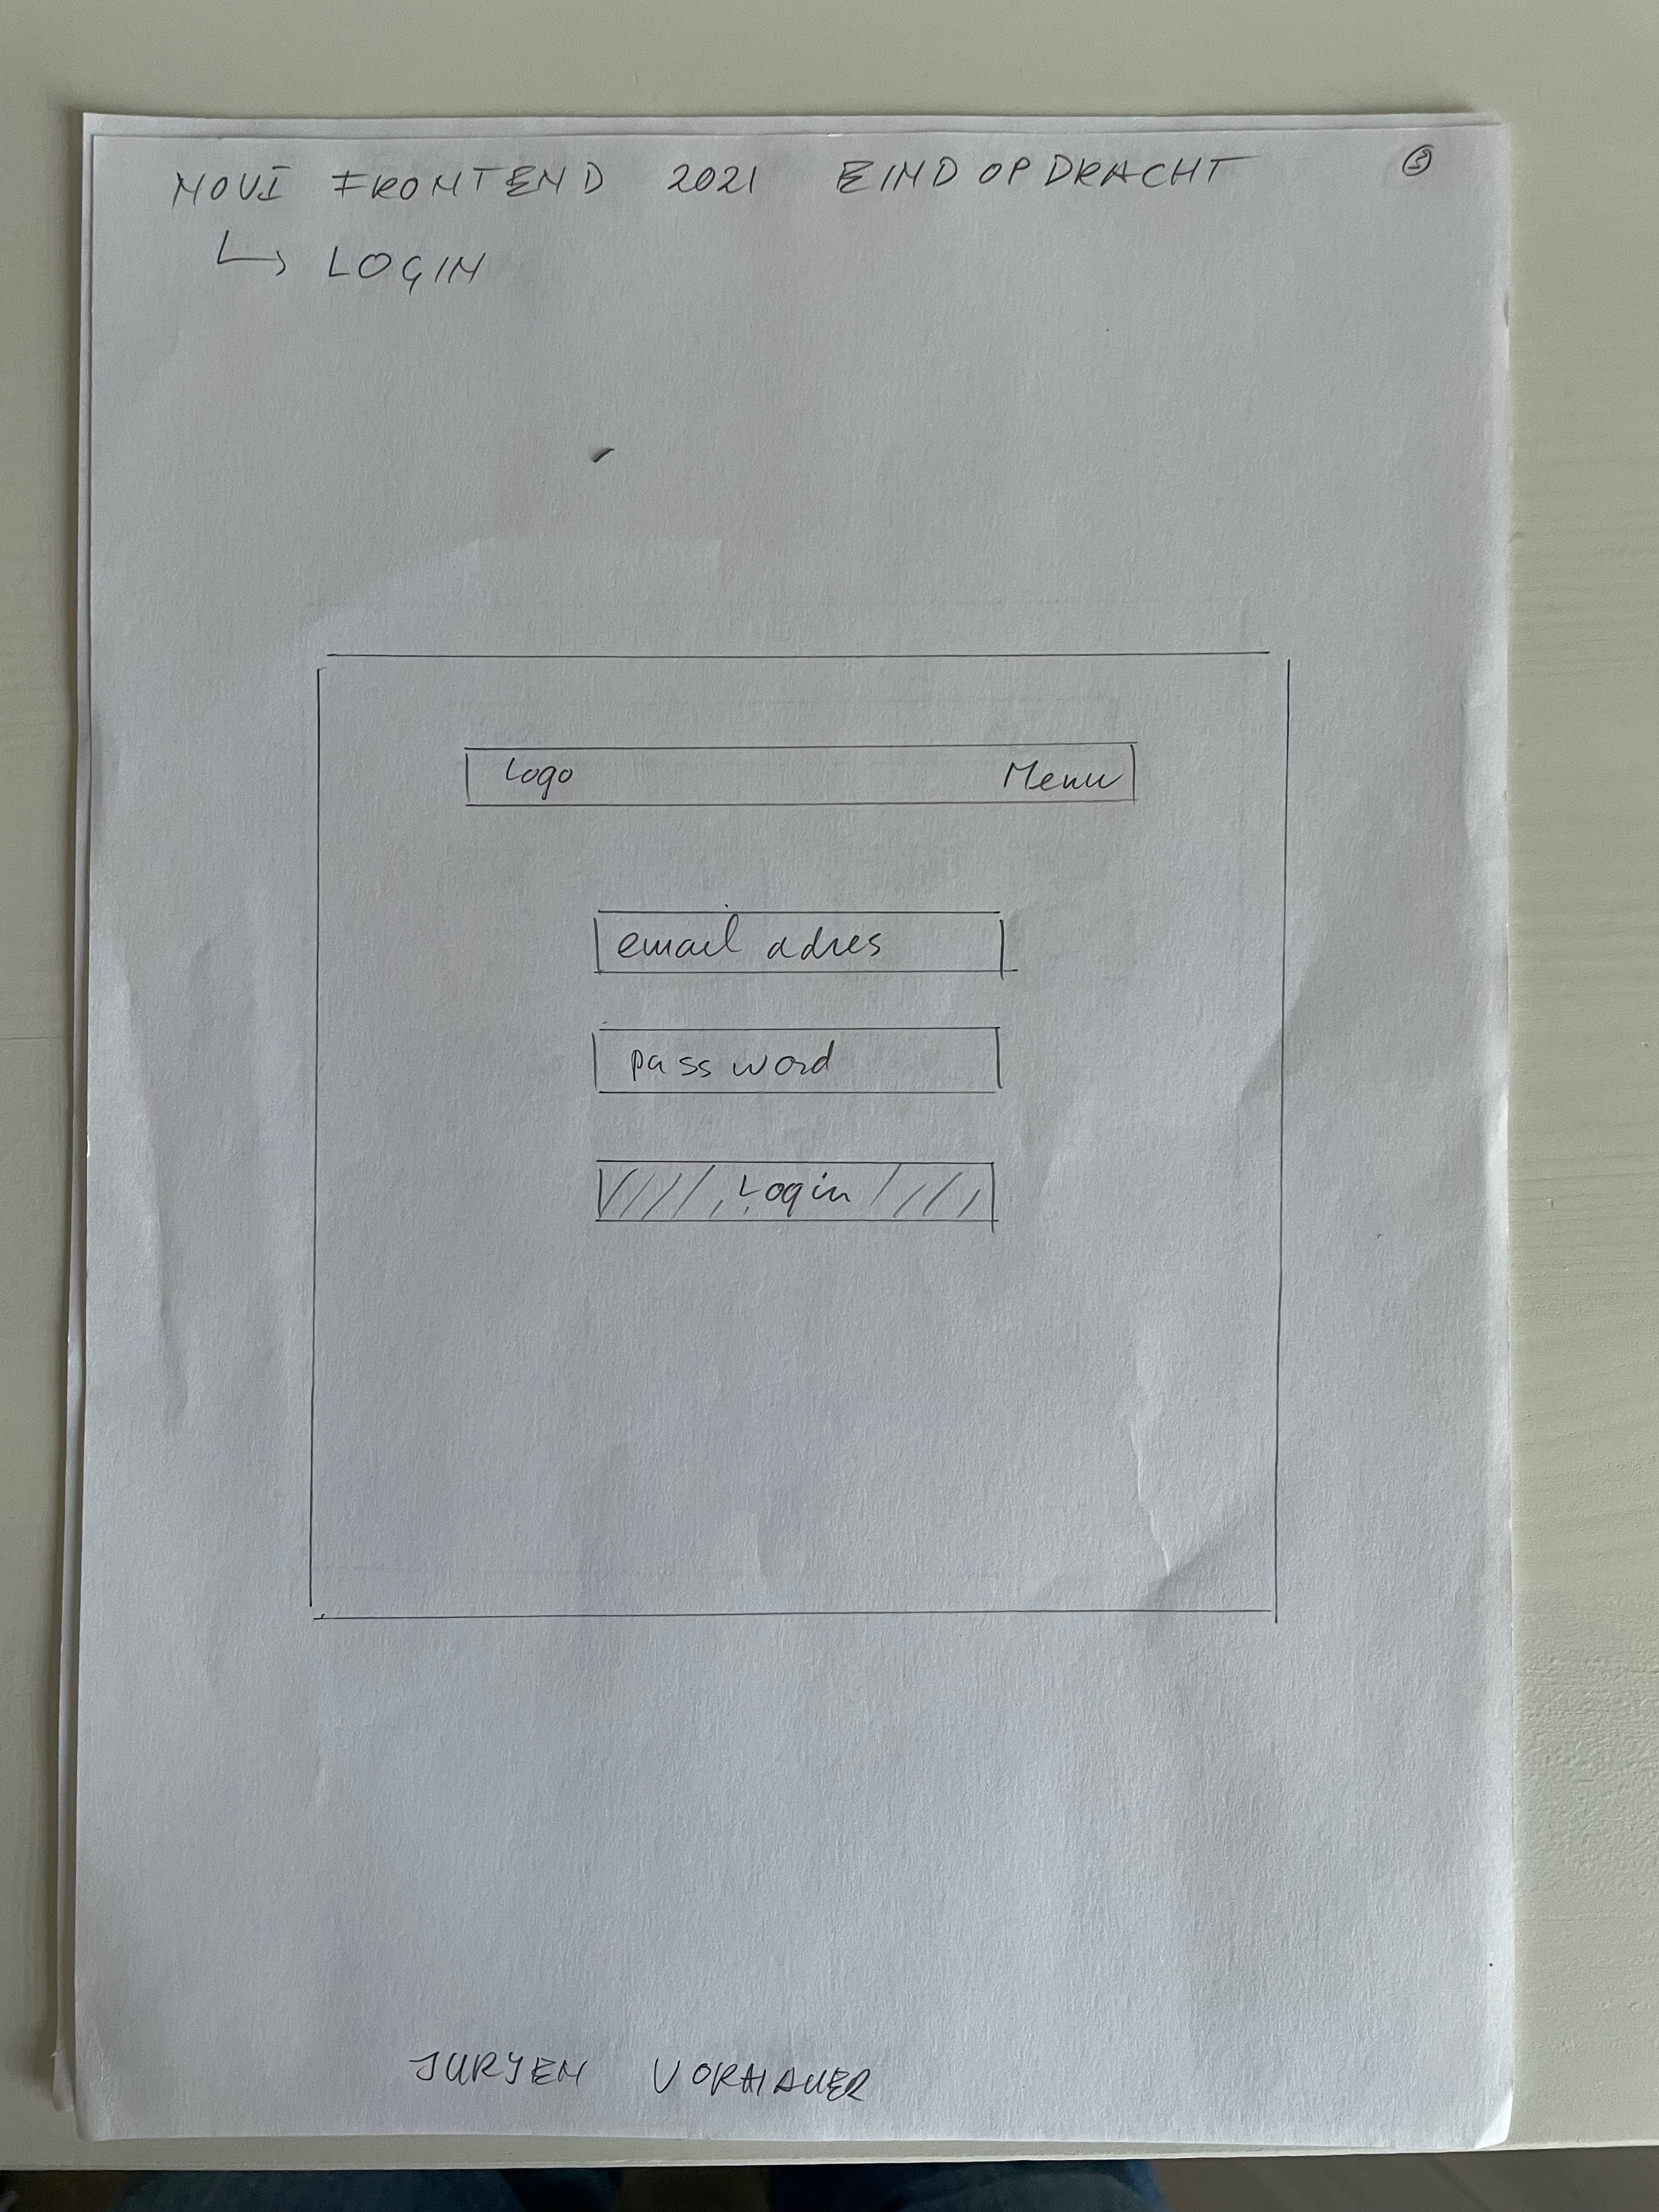 NOVI FRONTEND 2021 EINDOPDRACHT
↳ LOGIN
Logo Menu
email adres
password
Login
JURJEN VORHAUER